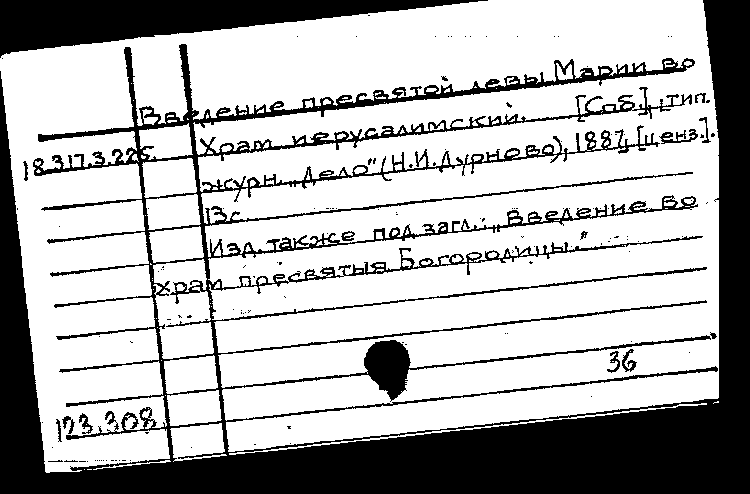 Введение пресвятой девы Марии во
18.317.3.225. Храм иерусалимский. [Спб.], тип.
журн. „Дело“ (Н.И.Дурново), 1887, [ценз.].
13с.
Изд. также под загл.: „Введение во
храм пресвятыя Богородицы.“
36
123.308.